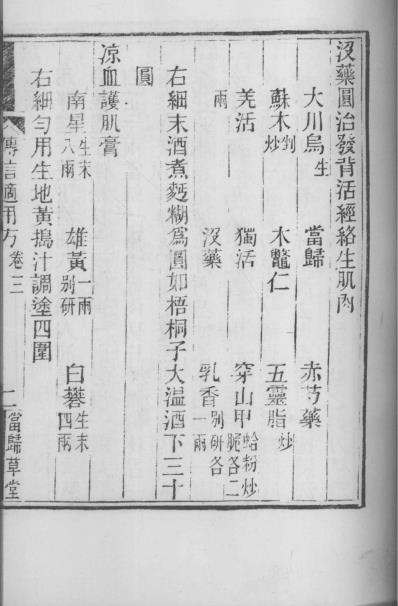 沒藥圓治發背活經絡生肌肉
大川烏生　當歸　赤芍藥
蘇木剉炒　木鼈仁　五靈脂炒
羌活　獨活　穿山甲蛤粉炒脆各二
兩　沒藥　乳香別研各一兩
右細末酒煮麪糊為圓如梧桐子大温酒下三十
圓
凉血護肌膏
南星生末八兩　雄黃一兩别研　白蘞生末四兩
右細勻用生地黃搗汁調塗四圍
傳信適用方　卷三　二　當歸草堂